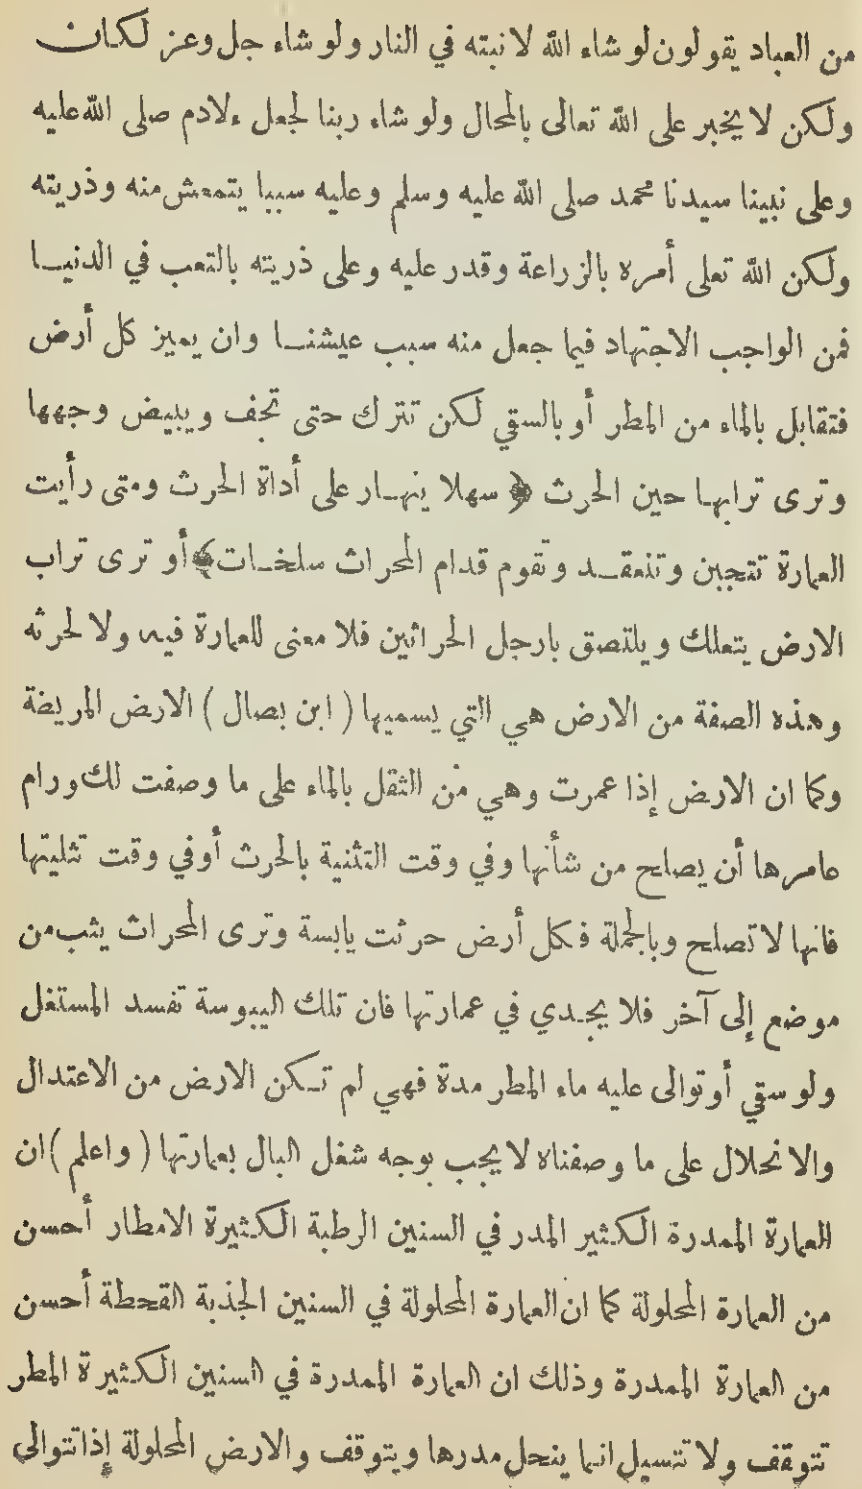 من العباد يقولون لو شاء الله لانبته في النار ولو شاء جل وعز لكان
ولكن لا يخبر على الله تعالى بالمحال ولو شاء ربنا لجعل ءلادم صلى الله عليه
وعلى نبينا سيدنا محمد صلى الله عليه وسلم وعليه سببا يتمعش منه وذريته
ولكن الله تعلى أمره بالزراعة وقدر عليه وعلى ذريته بالتعب في الدنيا
فمن الواجب الاجتهاد فيما جعل منه سبب عيشنا وان يميز كل أرض
فتقابل بالماء من المطر أو بالسقي لكن تترك حتى تجف ويبيض وجهها
وترى ترابها حين الحرث ﴿ سهلا ينهار على أداة الحرث ومتى رأيت
العمارة تتجبن وتنعقد وتقوم قدام المحراث سلخات﴾ أو ترى تراب
الارض يتعلك ويلتصق بارجل الحراثين فلا معنى للعمارة فيه ولا لحرثه
وهذه الصفة من الارض هي التي يسميها ( ابن بصال ) الارض المريضة
وكما ان الارض إذا عمرت وهي من الثقل بالماء على ما وصفت لك ورام
عامرها أن يصلح من شأنها وفي وقت التثنية بالحرث أوفي وقت تثليتها
فانها لا تصلح وبالجملة فكل أرض حرثت يابسة وترى المحراث يثب من
موضع إلى آخر فلا يجدي في عمارتها فان تلك اليبوسة تفسد المستغل
ولو سقي أو توالى عليه ماء المطر مدة فهي لم تكن الارض من الاعتدال
والانحلال على ما وصفناه لا يجب بوجه شغل البال بعمارتها ( واعلم )ان
العمارة الممدرة الكثير المدر في السنين الرطبة الكثيرة الامطار أحسن
من العمارة المحلولة كما ان العمارة المحلولة في السنين الجذبة القحطة أحسن
من العمارة الممدرة وذلك ان العمارة الممدرة في السنين الكثيرة المطر
تتوقف ولا تتسيل انما ينحل مدرها ويتوقف والارض المحلولة إذا تتوالى